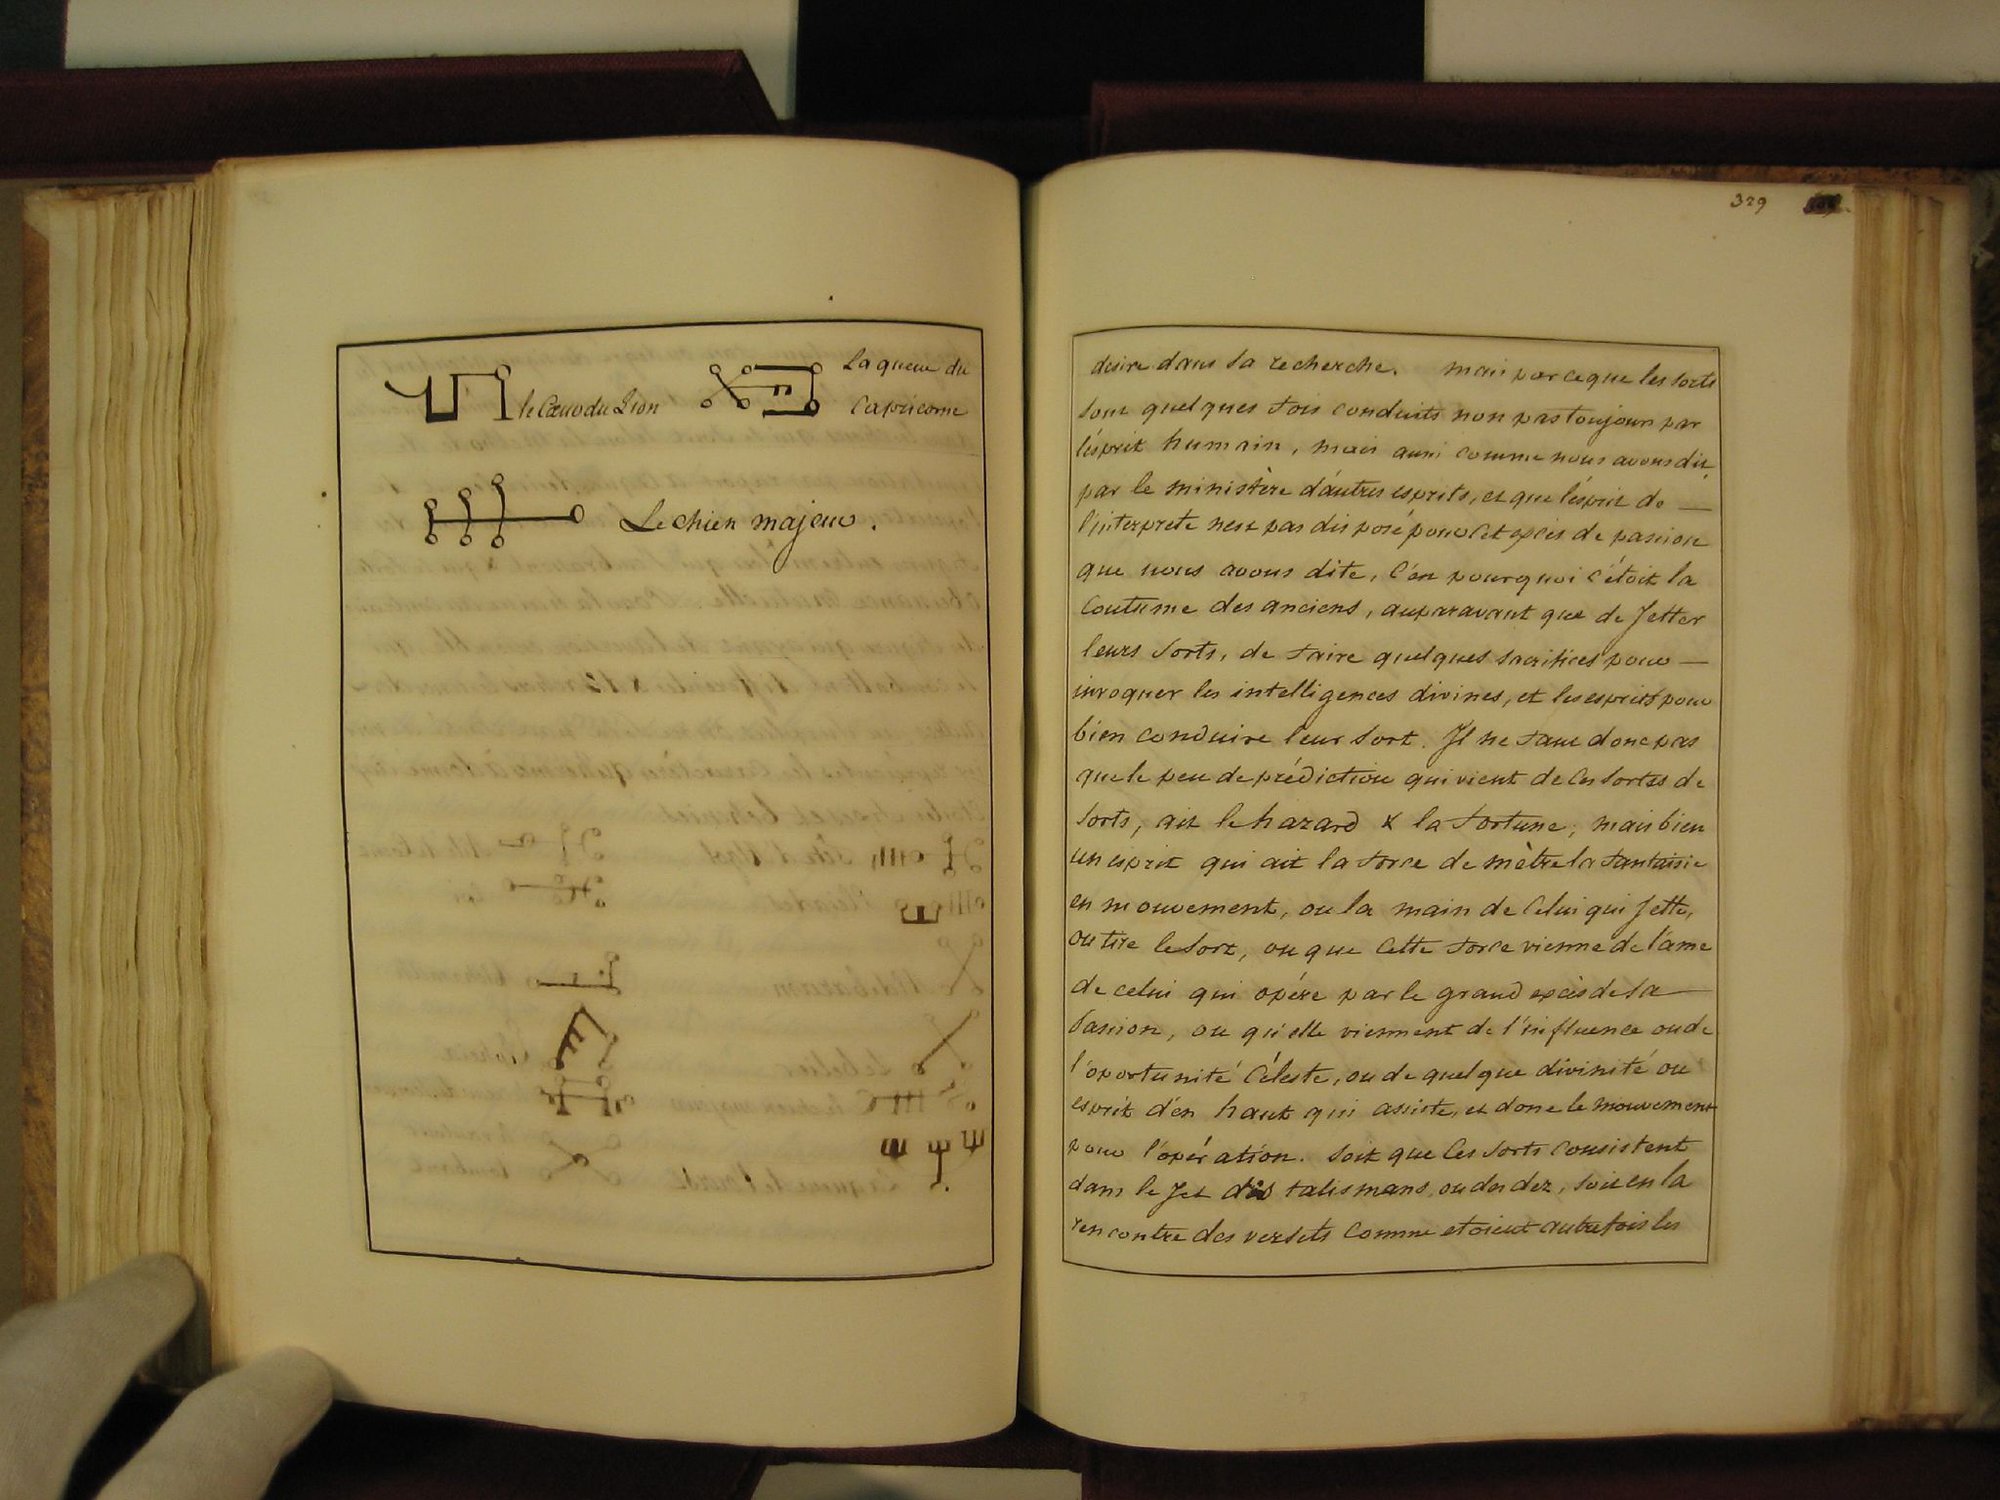 le Cœur du Lion
La queue du
Capricorne
Le chien majeur.
329
desire dans sa recherche. mais parceque les sorts
sont quelques fois conduits non pas toujours par
l'esprit humain, mais aussi comme nous avons dit
par le ministère d'autres esprits, et que l'esprit de —
l'interprete nest pas disposé pour cet excès de passion
que nous avons dite, c'en pourquoi c'étoit la
coutume des anciens, auparavant que de Jetter
leurs sorts, de faire quelques sacrifices pour —
invoquer les intelligences divines, et les esprits pour
bien conduire leur sort. Il ne faut donc pas
que le peu de prédiction qui vient de ces sortes de
sorts, ait le hazard & la fortune, mais bien
un esprit qui ait la force de mètre la fantaisie
en mouvement, ou la main de celui qui Jette,
ou tire le sort, ou que cette force vienne de l'ame
de celui qui opére par le grand excès de sa —
passion, ou qu'elle viennent de l'influence ou de
l'oportunité Céleste, ou de quelque divinité ou
esprit d'en haut qui assiste, et done le mouvement
pour l'opération. Soit que les sorts consistent
dans le Jet des talismans, ou des dez, soit en la
rencontre des versets comme etoient autrefois les